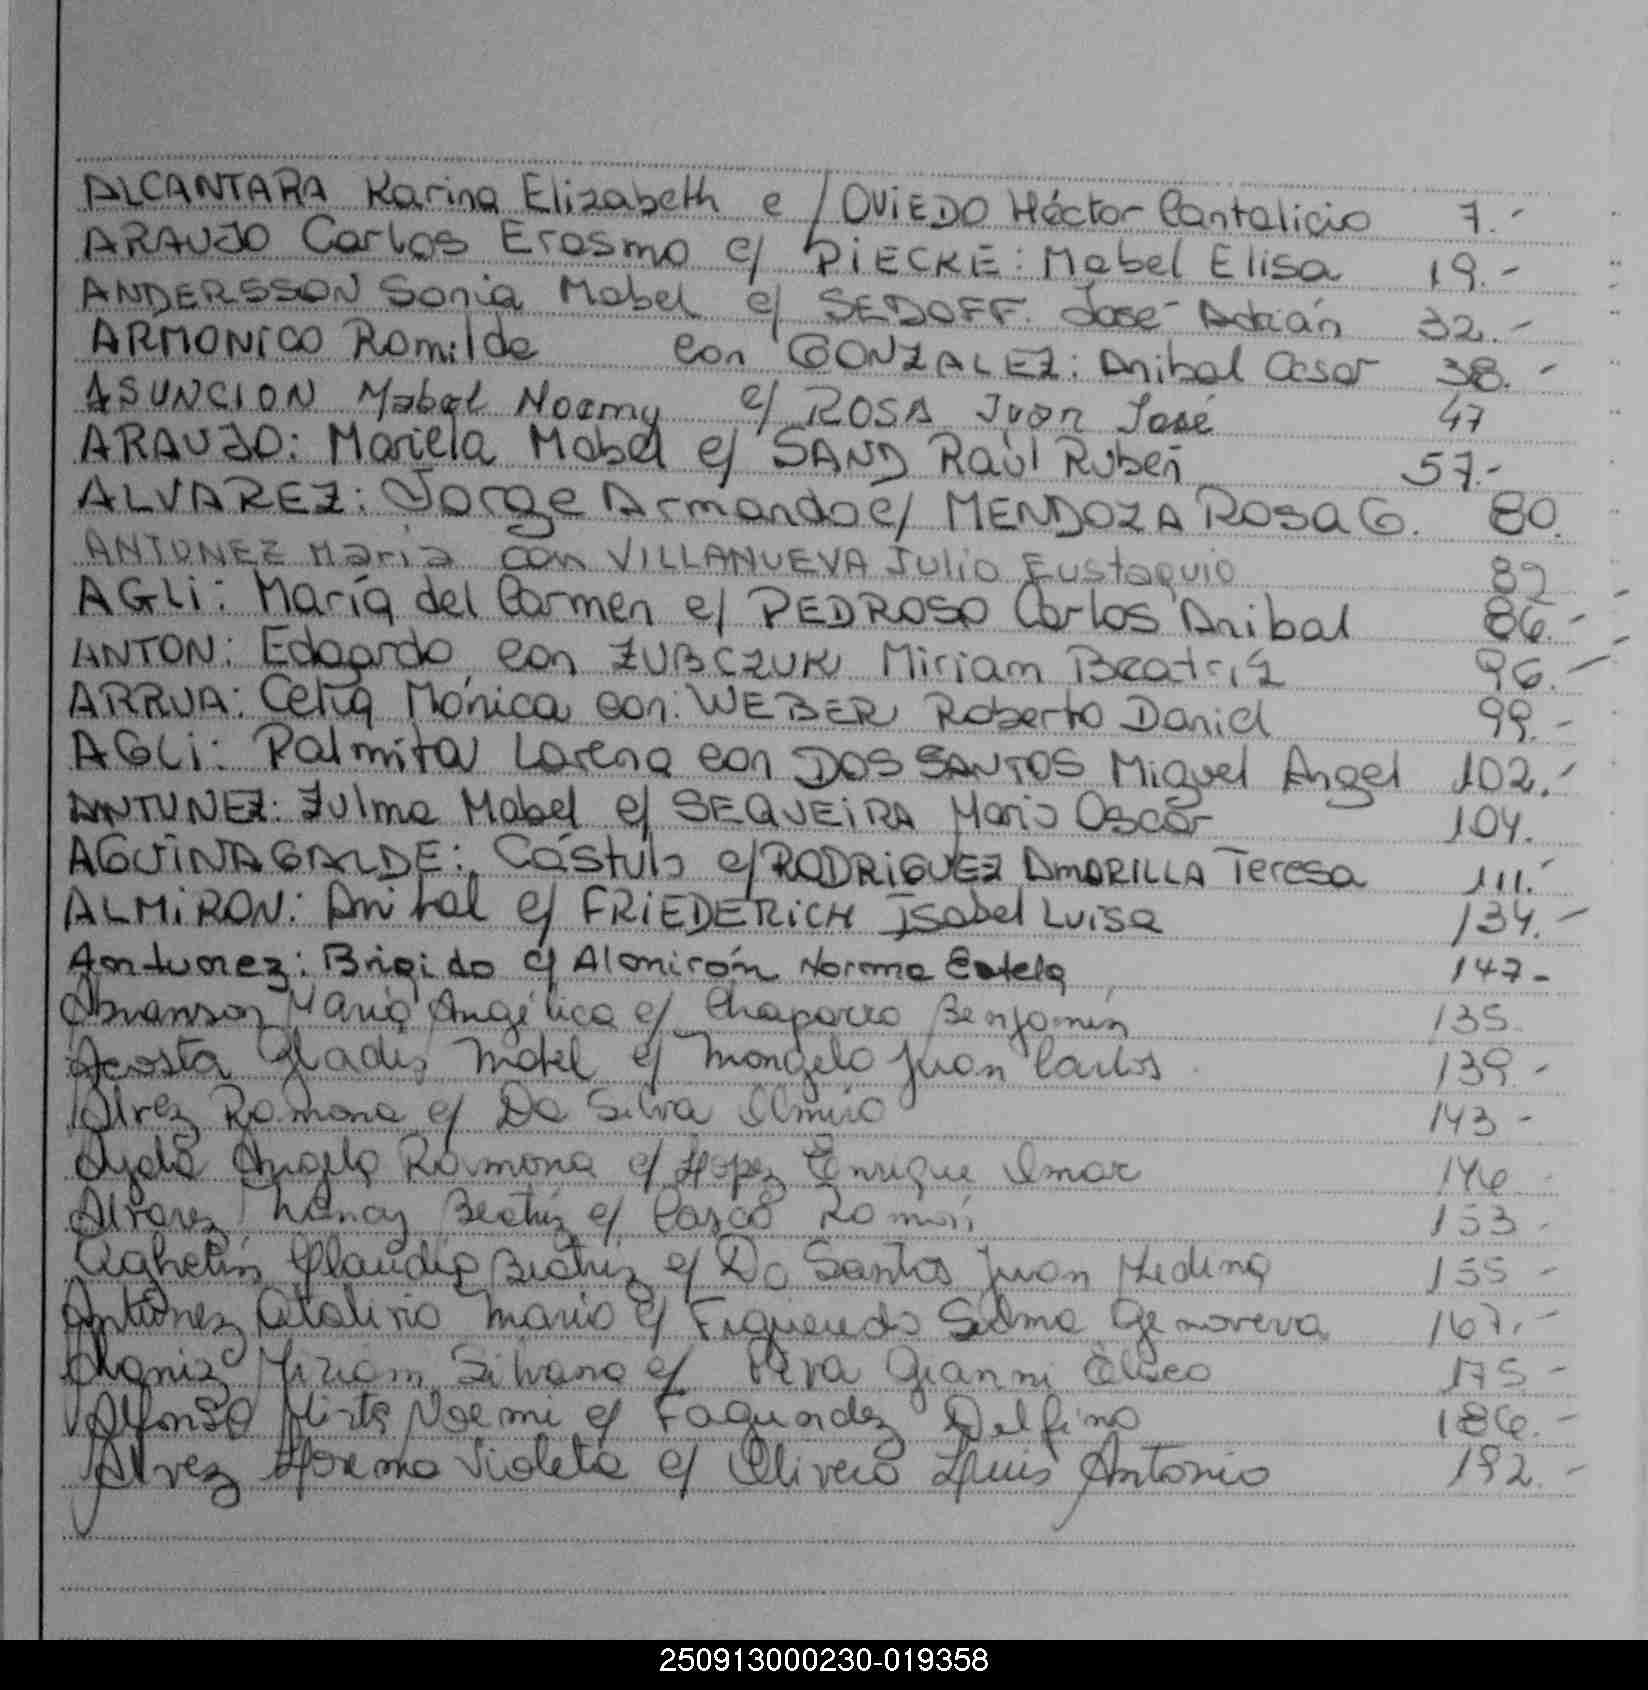 ALCANTARA Karina Elizabeth c/ OVIEDO Héctor Cantalicio 7.-
ARAUJO Carlos Erasmo c/ PIECKE: Mabel Elisa 19.-
ANDERSSON Sonia Mabel c/ SEDOFF. José Adrián 32.-
ARMONICO Romilda con GONZALEZ: Anibal Cesar 38.-
ASUNCION Mabel Noemy c/ ROSA Juan José 47
ARAUJO: Mariela Mabel c/ SAND Raúl Rubén 57.-
ALVAREZ: Jorge Armando c/ MENDOZA ROSA G. 80.
ANTUNEZ María con VILLANUEVA Julio Eustaquio 82
AGLI: María del Carmen c/ PEDROSO Carlos Anibal 86.-
ANTON: Edgardo con ZUBCZUK Miriam Beatriz 96.-
ARRUA: Celia Mónica con: WEBER Roberto Daniel 99.-
AGLI: Palmita Lorena con DOS SANTOS Miguel Angel 102.-
ANTUNEZ: Zulma Mabel c/ SEQUEIRA Mario Oscar 104.
AGUINAGALDE: Cástulo c/ RODRIGUEZ AMARILLA Teresa 111.-
ALMIRON: Anibal c/ FRIEDERICH Isabel Luisa 134.-
Antunez: Brigido c/ Almirón Norma Estela 147-
María Angélica c/ Chaparro Benjamín 135.
Acosta Gladis Mabel c/ Mongelo Juan Carlos 139.-
Alvez Ramona c/ Da Silva Almiro 143-
Ayala Angela Ramona c/ Lopez Enrique Omar 146-
Alvarez Nancy Beatriz c/ Casco Ramón 153-
Claudia Beatriz c/ Do Santos Juan Medina 155-
Antunez Atalivio Mario c/ Figueredo Selma Genoveva 167.-
Miriam Silvana c/ Piva Gianni Eliseo 175-
Alfonso Mirta Noemi c/ Fagundez Delfino 186.-
Alvez Norma Violeta c/ Olivera Luis Antonio 192.-
250913000230-019358